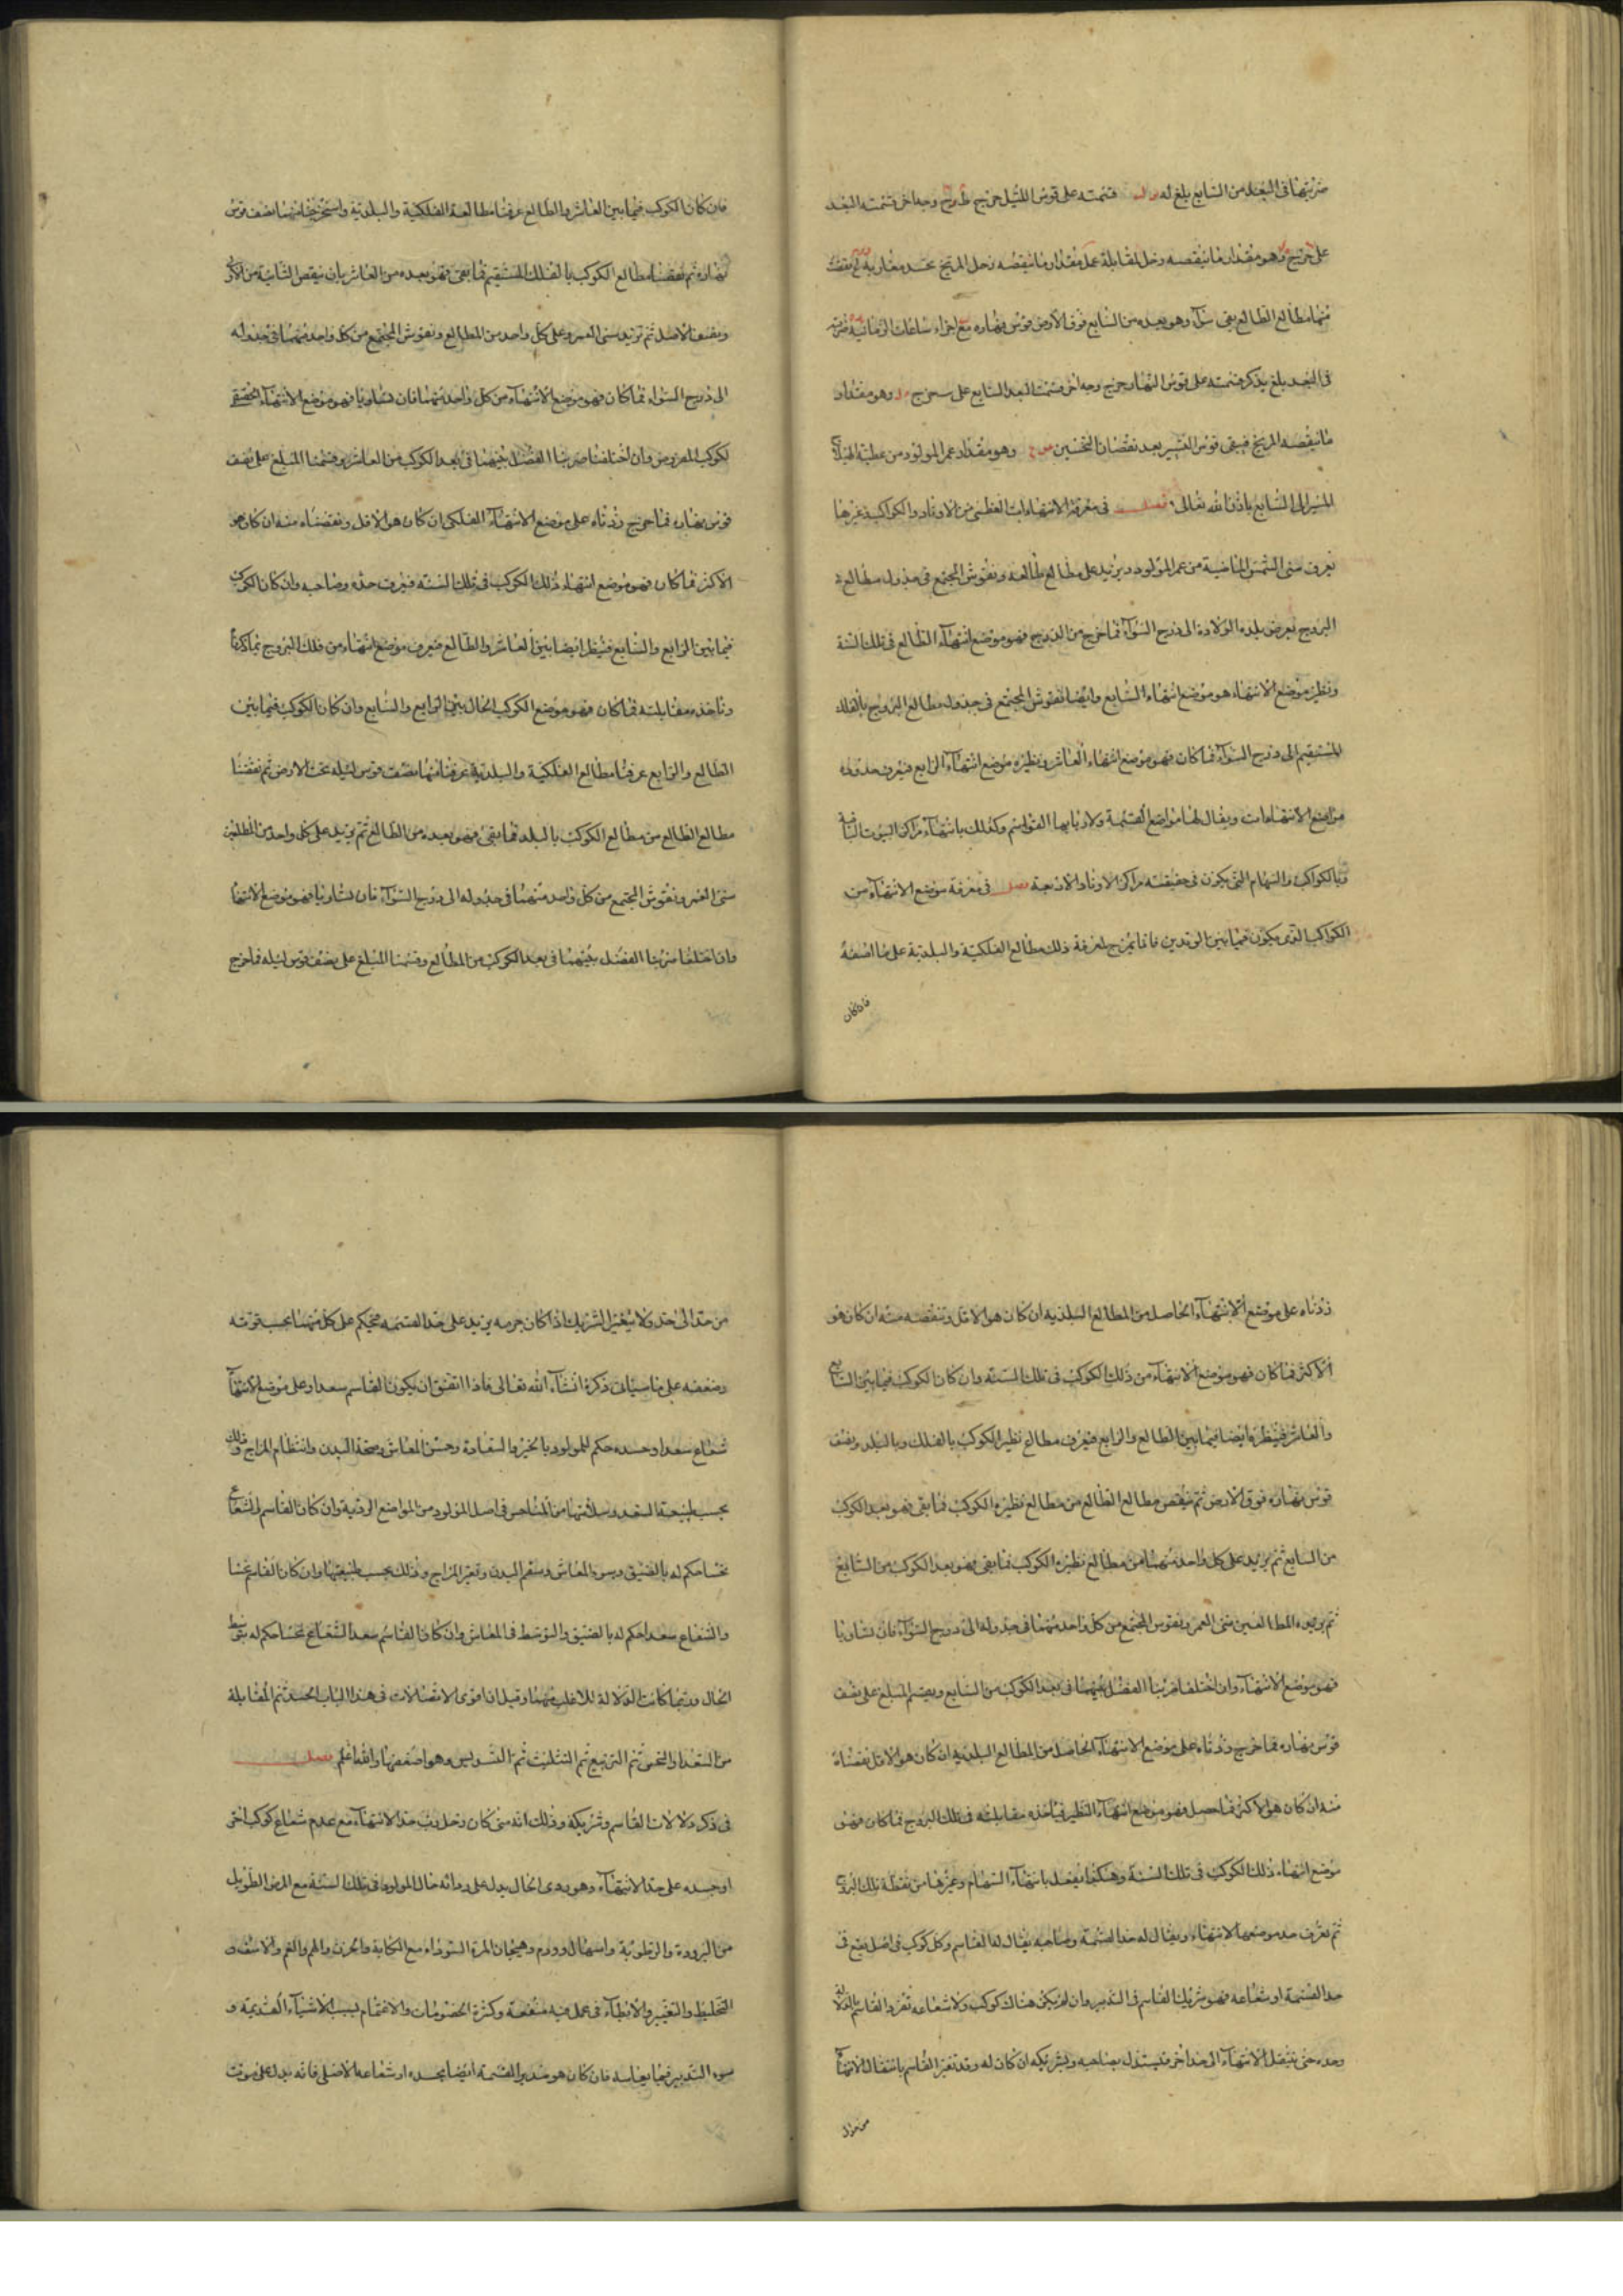 ضربتها فى البعد من السابع بلغ له فتمته على قوس الليل خرج وجه اخر قتمته البعد
على خرج وهو مقدار ما ينقصه زحل لمقابلة عمل مقدار ما ينقصه زحل المريخ نجد مغاربه نقصت
منها مطالع الطالع بقى سوآ وهو بعده من السابع فوق الارض قوس نهاره مع اجزاء ساعات الزمانية ضربته
فى البعد بلغ يذكر قسمته على قوس النهار خرج وجه اخر قسمت البعد السابع على خرج وهو مقدار
ما ينقصه المريخ فيبقى قوس التسيير بعد نقصان النحسين وهو مقدار عمر المولود من عطية الهيلاج
المسير الى السابع باذن الله تعالى فصل فى معرفة الانتهاءات العظمى من الاوتاد والكواكب وغيرها
نعرف سنى الشمس الماضية من عمر المولود ونزيد على مطالع طالعه ونقوس المجتمع فى جدول مطالع
البروج بعرض بلده الولادة الى درج السوآء فما خرج من البروج فهو موضع انتهاء الطالع فى تلك السنة
ونظير موضع الانتهاء هو موضع انتهاء السابع وايضا نقوس المجتمع فى جدول مطالع البروج بالفلك
المستقيم الى درج السوآء فما كان فهو موضع انتهاء العاشر ونظيره موضع انتهاء الرابع فيعرف حدود
مواضع الانتهاءات ويقال لها مواضع القسمة ولاربابها القواسم وكذلك بانتهاء مراكز البيوت الباقية
وبالكواكب والسهام التى يكون فى حقيقته مراكز الاوتاد الاربعة فصل فى معرفة موضع الانتهاء من
الكواكب التى يكون فيما بين الوتدين فانا نحتاج لمعرفة ذلك مطالع الفلكية والبلدية على ما اصفه
فان كان
فان كان الكوكب فيما بين العاشر والطالع عرفنا مطالعه الفلكية والبلدية واستخرجنا منها نصف قوس
نهاره ثم نقصنا مطالع الكوكب بالفلك المستقيم فما بقى فهو بعده من العاشر بان ينقص الثانية من الاول
ونصف الاصل ثم نزيد سنى العمر وعلى كل واحد من المطالع ونقوس المجتمع من كل واحد منهما فى جدوله
الى درج السواء فما كان فهو موضع الانتهاء من كل واحد منهما فان تساويا فهو موضع الانتهاء الحقيقى
لكوكب المفروض وان اختلفتا ضربنا الفضل بينهما فى بعد الكوكب من العاشر وقسمنا المبلغ على نصف
قوس نهاره فما خرج زدناه على موضع الانتهاء الفلكى ان كان هو الاقل ونقصناه منه ان كان هو
الاكثر فما كان فهو موضع انتهاء ذلك الكوكب فى تلك السنة فيعرف حده وصاحبه وان كان الكوكب
فيما بين الرابع والسابع فنظر ايضا بين العاشر والطالع فنعرف موضع انتهاء من فلك البروج بما ذكرنا
وناخذ مقابلته فما كان فهو موضع الكوكب الحال بين الرابع والسابع وان كان الكوكب فيما بين
الطالع والرابع عرفنا مطالع الفلكية والبلدية عرفنا منها نصف قوس ليله تحت الارض ثم نقصنا
مطالع الطالع من مطالع الكوكب بالبلد فما بقى فهو بعده من الطالع ثم نزيد على كل واحد من المطلعين
سنى العمر ونقوس المجتمع من كل واحد منهما فى جدوله الى درج السوآء فان تساويا فهو موضع الانتهاء
وان اختلفا ضربنا الفضل بينهما فى بعد الكوكب من المطالع وقسمنا المبلغ على نصف قوس ليله فما خرج
زدناه على موضع الانتهاء الحاصل من المطالع البلدية ان كان هو الاقل وننقصه منه ان كان هو
الاكثر فما كان فهو موضع الانتهاء من ذلك الكوكب فى تلك السنة وان كان الكوكب فيما بين السابع
والعاشر فنظر ايضا فيما بين الطالع والرابع فيعرف مطالع نظير الكوكب بالفلك وبالبلد ونصف
قوس نهاره فوق الارض ثم ينقص مطالع الطالع من مطالع نظيره الكوكب فما بقى فهو بعد الكوكب
من السابع ثم يزيد على كل واحد منهما من مطالع نظيره الكوكب فما بقى فهو بعد الكوكب من السابع
ثم يزيد المطالعين سنى العمر ونقوس المجتمع من كل واحد منهما فى جدوله الى درج السوآء فان تساويا
فهو موضع الانتهاء وان اختلفا ضربنا الفضل بينهما فى بعد الكوكب من السابع ويقسم المبلغ على نصف
قوس نهاره فما خرج زدناه على موضع الانتهاء الحاصل من المطالع البلدية ان كان هو الاقل نقصناه
منه ان كان هو الاكثر فما حصل فهو موضع انتهاء النظير فياخذ مقابلته فى فلك البروج فما كان فهو
موضع انتهاء ذلك الكوكب فى تلك السنة وهكذا يفعل بانتهاء السهام وغيرها من نقطة فلك البروج
ثم نعرف حد موضع الانتهاء ويقال له حد القسمة وصاحبه يقال له القاسم وكل كوكب فى اصل يقع فى
حد القسمة او شعاعه فهو شريك القاسم فى التدبير وان لم يكن هناك كوكب ولا شعاعه تفرد القاسم بالدلالة
وحده حتى ينتقل الانتهاء الى حد اخر فيستدل بصاحبه وبشريكه ان كان له وقد تغير القاسم بانتقال الانتهاء
من حد الى
من حد الى حد ولا يتغير الشريك اذا كان جرمه يزيد على حد القسمه فيحكم على كل منهما بحسب قوته
وضعفه على ما سياتى ذكره انشاء الله تعالى فاذا اتفق ان يكون القاسم سعدا وعلى موضع الانتهاء
شعاع سعد او جسده حكم للمولود بالخير والسعادة وحسن المعاش وصحة البدن وانتظام المزاج وذلك
بحسب طبيعة السعد وسلامتها من المناحس فى اصل المولود من المواضع الردية وان كان القاسم والشعاع
نحسا حكم له بالضيق وسوء المعاش وسقم البدن وتغير المزاج وذلك بحسب طبيعتها وان كان القاسم نحسا
والشعاع سعدا حكم له بالضيق والتوسط فى المعاش وان كان القاسم سعدا الشعاع نحسا حكم له بتوسط
الحال وربما كانت الدلالة للاغلب منهما وقيل ان اقوى الاتصالات فى هذا الباب الجسد ثم المقابلة
من السعد والنحس ثم التربيع ثم التثليث ثم التسديس وهو اضعفها والله اعلم فصل
فى ذكر دلالات القاسم وشريكه وذلك انه متى كان زحل رب حد الانتهاء مع عدم شعاع كوكب اخر
او جسده على حد الانتهاء وهو ردى الحال يدل على رداءة حال المولود فى تلك السنة مع المرض الطويل
من البرودة والرطوبة واسهال وورم وهيجان المرة السوداء مع الكآبة والحزن والهم والغم والاسف و
التخليط والتغيير والابطآء فى عمل فيه منفعة وكثرة الخصومات والاغتمام بسبب الاشياء القديمة و
سوء التدبير فيما يعانيه فان كان هو مدبر القسمة ايضا بجسده او شعاعه الاصلى فانه يدل على موت